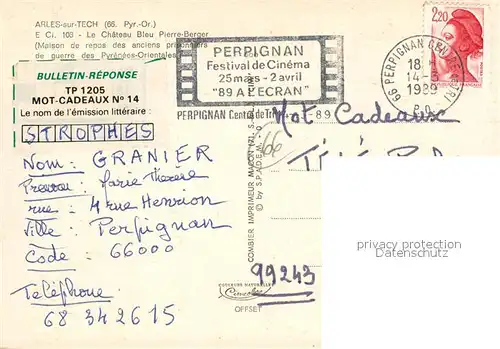 ARLES-sur-TECH (66. Pyr.-Or.)
E Ci. 103 - Le Château Bleu Pierre-Berger
(Maison de repos des anciens prisonniers
de guerre des Pyrénées-Orientales
BULLETIN-RÉPONSE
TP 1205
MOT-CADEAUX No 14
Le nom de l'émission littéraire :
STROPHES
Nom : GRANIER
Prenom : Marie Therese
rue : 4 rue Henrion
Ville : Perpignan
Code : 66000
Telephone
68 34 26 15
PERPIGNAN
Festival de Cinéma
25 mars - 2 avril
"89 A L'ECRAN"
PERPIGNAN Centre de Tri
89
2,20
66 PERPIGNAN
18
14-3
1989
P.O.
Mot Cadeaux
66
COMBIER IMPRIMEUR MACON
© by S.P.A.D.E.M.
99243
COULEURS NATURELLES
Combier
OFFSET
propriété privée
www.delcampe.net